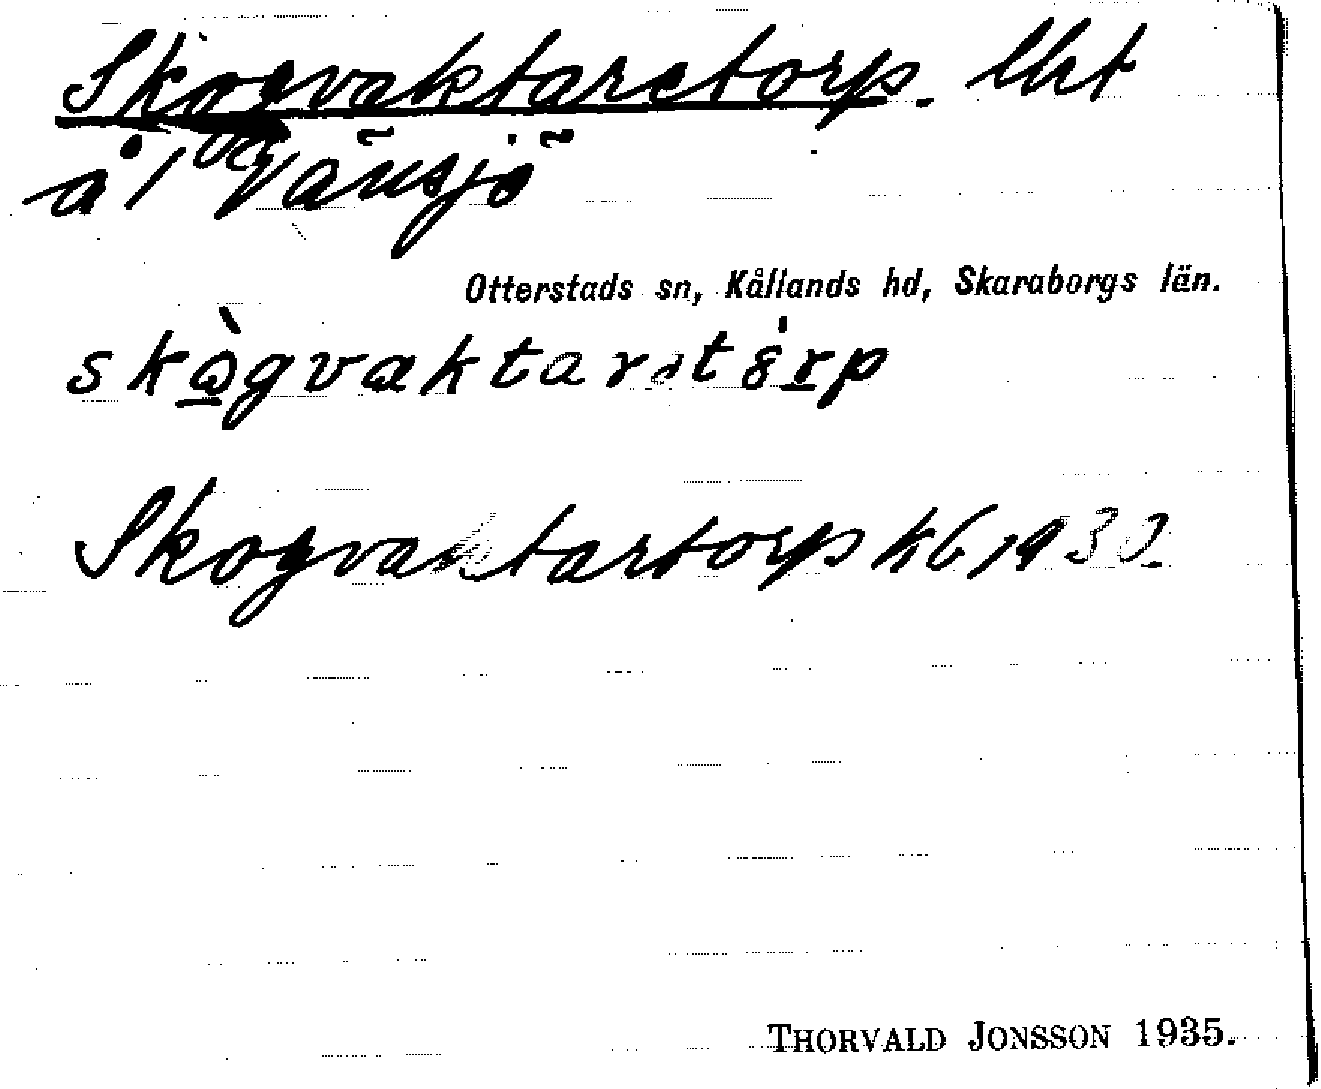 Skogvaktaretorp. lht
å 1⁰⁰ Vänsjö
Otterstads sn, Kållands hd, Skaraborgs län.
skògvaktaretȯrp
Skogvaktartorp kb 1930.
THORVALD JONSSON 1935.